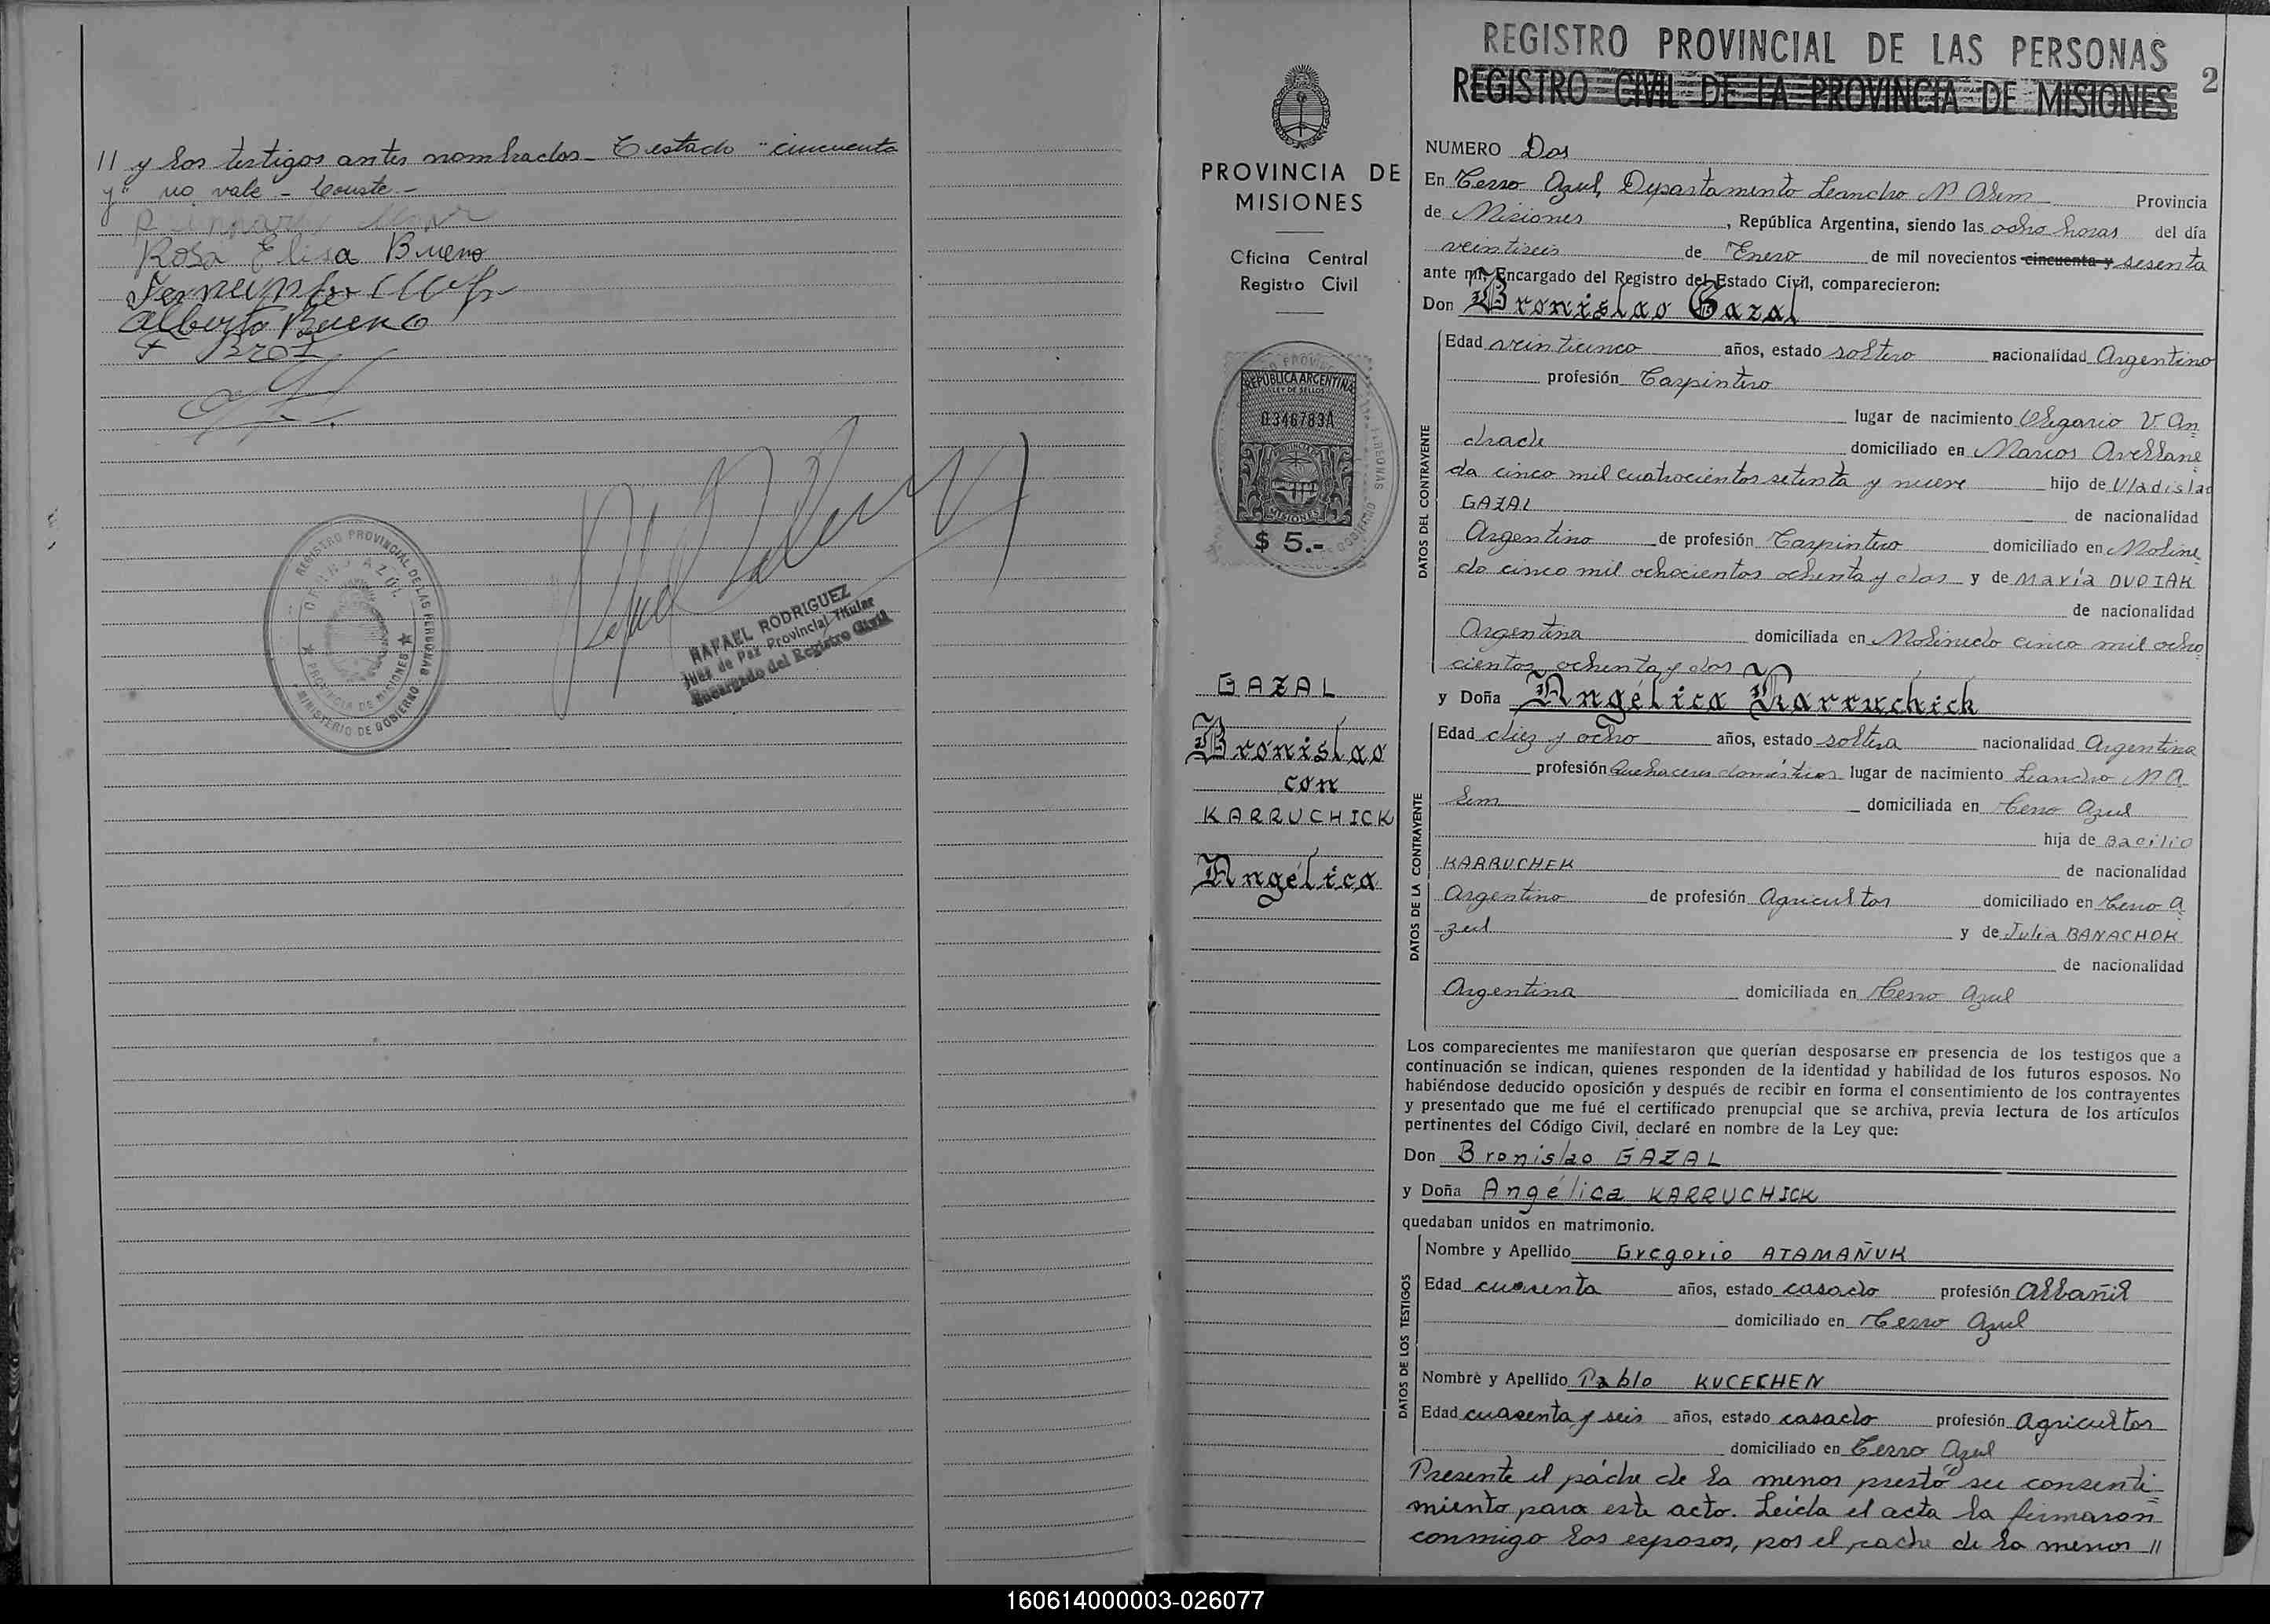 // y los testigos antes nombrados - Testado "cincuenta
y" no vale - Conste -
Rosa Elisa Bueno
Alberto Bueno
RAFAEL RODRIGUEZ
Juez de Paz Provincial Titular
Encargado del Registro Civil
REGISTRO PROVINCIAL DE LAS PERSONAS
CERRO AZUL
PROVINCIA DE MISIONES
MINISTERIO DE GOBIERNO
PROVINCIA DE
MISIONES
Oficina Central
Registro Civil
REPUBLICA ARGENTINA
LEY DE SELLOS
0346783A
MISIONES
$ 5.-
GAZAL
Bronislao
con
KARRUCHICK
Angélica
REGISTRO PROVINCIAL DE LAS PERSONAS
REGISTRO CIVIL DE LA PROVINCIA DE MISIONES
2
NUMERO Dos
En Cerro Azul, Departamento Leandro N. Alem Provincia
de Misiones, República Argentina, siendo las ocho horas del día
veintiseis de Enero de mil novecientos cincuenta y sesenta
ante mí, Encargado del Registro del Estado Civil, comparecieron:
Don Bronislao Gazal
DATOS DEL CONTRAYENTE
Edad veinticinco años, estado soltero nacionalidad Argentino
profesión Carpintero
lugar de nacimiento Olegario V. An-
drade domiciliado en Marcos Avellane-
da cinco mil cuatrocientos setenta y nueve hijo de Vladislao
GAZAL de nacionalidad
Argentino de profesión Carpintero domiciliado en Moline-
do cinco mil ochocientos ochenta y dos y de María DVOIAK
de nacionalidad
Argentina domiciliada en Molinedo cinco mil ocho-
cientos ochenta y dos
y Doña Angélica Karruchick
DATOS DE LA CONTRAYENTE
Edad diez y ocho años, estado soltera nacionalidad Argentina
profesión Quehaceres domésticos lugar de nacimiento Leandro N. A-
lem domiciliada en Cerro Azul
hija de Bacilio
KARRUCHEK de nacionalidad
Argentino de profesión Agricultor domiciliado en Cerro A-
zul y de Julia BANACHOK
de nacionalidad
Argentina domiciliada en Cerro Azul
Los comparecientes me manifestaron que querían desposarse en presencia de los testigos que a
continuación se indican, quienes responden de la identidad y habilidad de los futuros esposos. No
habiéndose deducido oposición y después de recibir en forma el consentimiento de los contrayentes
y presentado que me fué el certificado prenupcial que se archiva, previa lectura de los artículos
pertinentes del Código Civil, declaré en nombre de la Ley que:
Don Bronislao GAZAL
y Doña Angélica KARRUCHICK
quedaban unidos en matrimonio.
DATOS DE LOS TESTIGOS
Nombre y Apellido Gregorio ATAMAÑUK
Edad cuarenta años, estado casado profesión Albañil
domiciliado en Cerro Azul
Nombre y Apellido Pablo KUCECHEN
Edad cuarenta y seis años, estado casado profesión Agricultor
domiciliado en Cerro Azul
Presente el padre de la menor prestó su consenti-
miento para este acto. Leída el acta la firmaron
conmigo los esposos, por el padre de la menor //
160614000003-026077